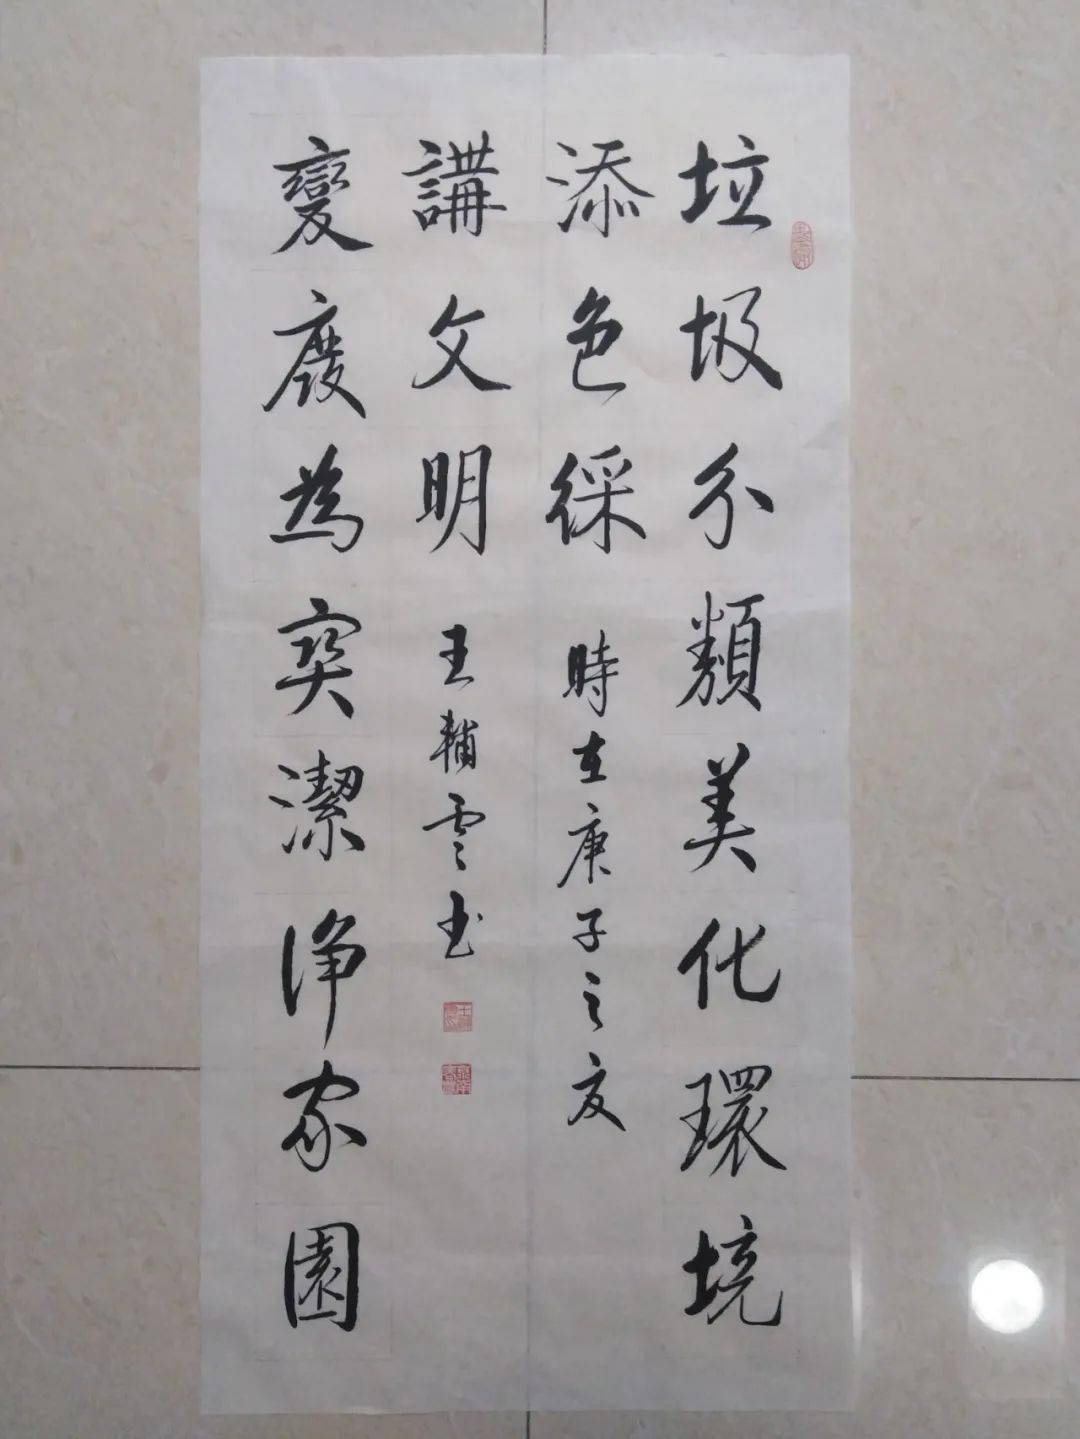 垃圾分類美化環境
添色綵
時在庚子之夏
變廢為寶潔淨家園
講文明
王輔雲書